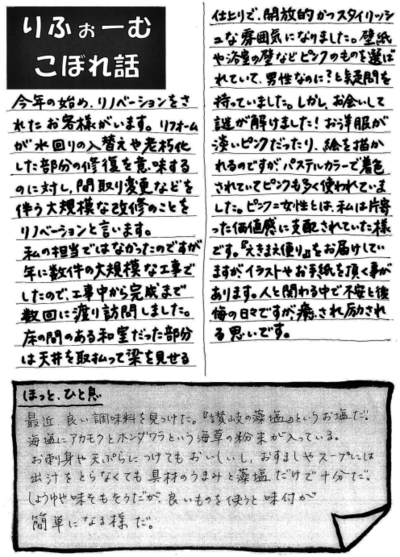 りふぉーむ
こぼれ話
今年の始め、リノベーションをさ
れたお客様がいます。リフォーム
が水回りの入替えや老朽化
した部分の修復を意味する
のに対し、間取り変更などを
伴う大規模な改修のことを
リノベーションと言います。
私の担当ではなかったのですが
年に数件の大規模な工事で
したので、工事中から完成まで
数回に渡り訪問しました。
床の間のある和室だった部分
は天井を取払って梁を見せる
仕上りで、開放的かつスタイリッシ
ュな雰囲気になりました。壁紙
や浴室の壁などピンクのものを選ば
れていて、男性なのに?と疑問を
持っていました。しかし、お会いして
謎が解けました!お洋服が
淡いピンクだったり、絵を描か
れるのですが、パステルカラーで着色
されていてピンクも多く使われていま
した。ピンク=女性とは、私は片寄
った価値感に支配されていた様
です。『えきまえ便り』をお届けしてい
ますがイラストやお手紙を頂く事が
あります。人と関わる中で不安と後
悔の日々ですが、癒され励され
る思いです。
ほっと、ひと息
最近、良い調味料を見つけた。『讃岐の藻塩』というお塩だ。
海塩にアカモクとホンダワラという海草の粉末が入っている。
お刺身や天ぷらにつけてもおいしいし、おすましやスープには
出汁をとらなくても具材のうまみと藻塩だけで十分だ。
しょうゆや味そもそうだが、良いものを使うと味付が
簡単になる様だ。